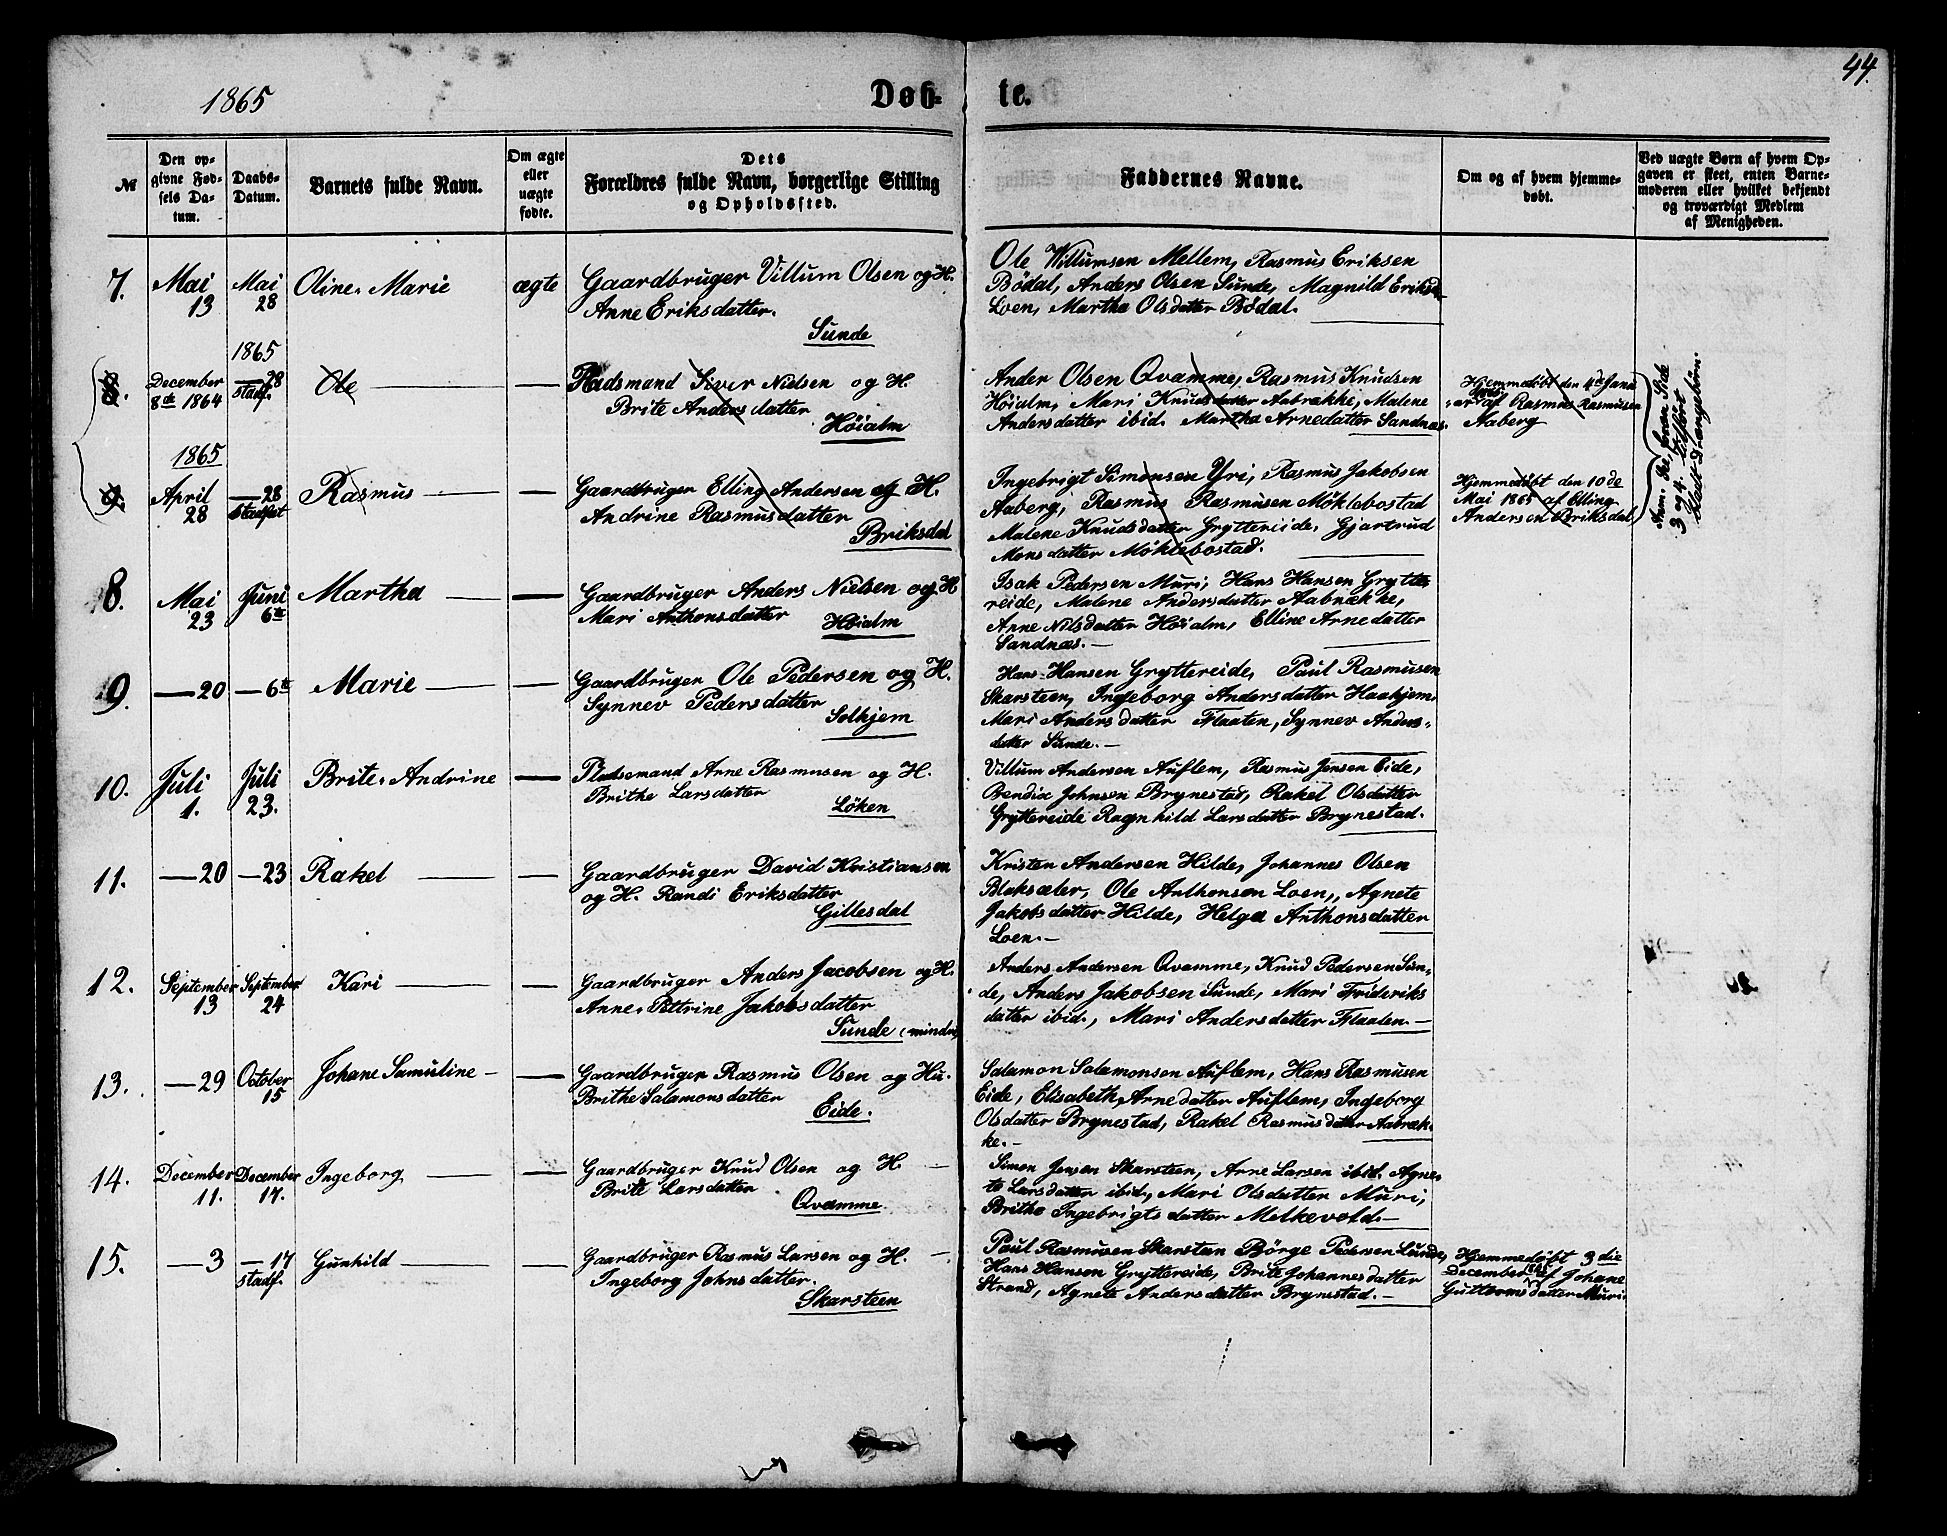 44.
1865
Døb- te.
№
Den opgivne Fødsels Datum.
Daabs-Datum.
Barnets fulde Navn.
Om ægte eller uægte fødte.
Dets Forældres fulde Navn, borgerlige Stilling og Opholdssted.
Faddernes Navne.
Om og af hvem hjemmedøbt.
Ved uægte Børn af hvem Opgaven er skeet, enten Barnemoderen eller hvilket bekjendt og troværdigt Medlem af Menigheden.
7. Mai 13 Mai 28 Oline Marie ægte Gaardbruger Villum Olsen og H.
Anne Eriksdatter.
Sunde
Ole Willumsen Mellem, Rasmus Eriksen
Bødal, Anders Olsen Sunde, Magnild Eriksd
Loen, Martha Olsdatter Bødal.
1865
8. December 8de 1864 — 28 stadf. Ole — — Pladsmand Siver Nielsen og H.
Brite Andersdatter
Høialm
Ander Olsen Qvamme, Rasmus Knudsen
Høialm, Mari Knudsdatter Aabrække, Malene
Andersdatter ibid. Martha Arnedatter Sandnæs.
Hjemmedøbt den 4de Janu
ar af Rasmus Rasmusen
Aaberg
3 og 4. tilført
bladt Drængebørn.
1865
9. April 28 — 28 stadfæst Rasmus — — Gaardbruger Elling Andersen og H.
Andrine Rasmusdatter
Briksdal
Ingebrigt Simonsen Yri, Rasmus Jakobsen
Aaberg, Rasmus Rasmusen Møklebostad
Malene Knudsdatter Gryttereide, Gjartrud
Monsdatter Møklebostad.
Hjemmedøbt den 10de
Mai 1865 af Elling
Andersen Briksdal
8. Mai 23 Juni 6te Martha — — Gaardbruger Anders Nielsen og H
Mari Anthonsdatter
Høialm
Isak Pedersen Muri, Hans Hansen Grytte
reide, Malene Andersdatter Aabrække,
Anne Nilsdatter Høialm, Elline Arnedatter
Sandnæs.—
9. — 20 — 6te Marie — — Gaardbruger Ole Pedersen og H.
Synnev Pedersdatter
Solhjem
Hans Hansen Gryttereide, Paul Rasmusen
Skarsteen, Ingeborg Andersdatter Haahjem
Mari Andersdatter Flaaten, Synnev Anders-
datter Sunde.—
10. Juli 1. Juli 23. Brite Andrine — Pladsemand Arne Rasmusen og H.
Brithe Larsdatter
Løken
Villum Andersen Auflem, Rasmus Jensen Eide,
Bendix Johnsen Brynestad, Rakel Olsdatter
Gryttereide Ragnhild Larsdatter Brynestad.
11. — 20 — 23 Rakel — — Gaardbruger David Kristiansen
og H. Randi Eriksdatter
Gillesdal
Kristen Andersen Hilde, Johannes Olsen
Bleksæter, Ole Anthonsen Loen, Agnete
Jakobsdatter Hilde, Helga Anthonsdatter
Loen.—
12. September 13 September 24 Kari — — Gaardbruger Anders Jacobsen og H.
Anne Pettrine Jakobsdatter
Sunde (mindre)
Anders Andersen Qvamme, Knud Pedersen Sun-
de, Anders Jakobsen Sunde, Mari Frideriks
datter ibid., Mari Andersdatter Flaaten.—
13. — 29 October 15 Johane Samuline — — Gaardbruger Rasmus Olsen og Hu.
Brithe Salamonsdatter
Eide.
Salamon Salamonsen Auflem, Hans Rasmusen
Eide, Elisabeth Arnedatter Auflem, Ingeborg
Olsdatter Brynestad, Rakel Rasmusdatter Aabræk-
ke.—
14. December 11. December 17. Ingeborg — — Gaardbruger Knud Olsen og H. —
Brite Larsdatter
Qvamme
Simon Jensen Skarsteen, Arne Larsen ibid. Agne-
te Larsdatter ibid, Mari Olsdatter Muri,
Brithe Ingebrigtsdatter Melkevold.—
15. — 3 — 17 stadf. Gunhild — — Gaardbruger Rasmus Larsen og H. —
Ingeborg Johnsdatter.
Skarsteen
Paul Rasmusen Skarsteen Børge Pedersen Lunde,
Hans Hansen Gryttereide, Brite Johannesdatter
Strand, Agnete Andersdatter Brynestad.—
Hjemmedøbt 3die
December af Johane
Guttormsdatter Muri